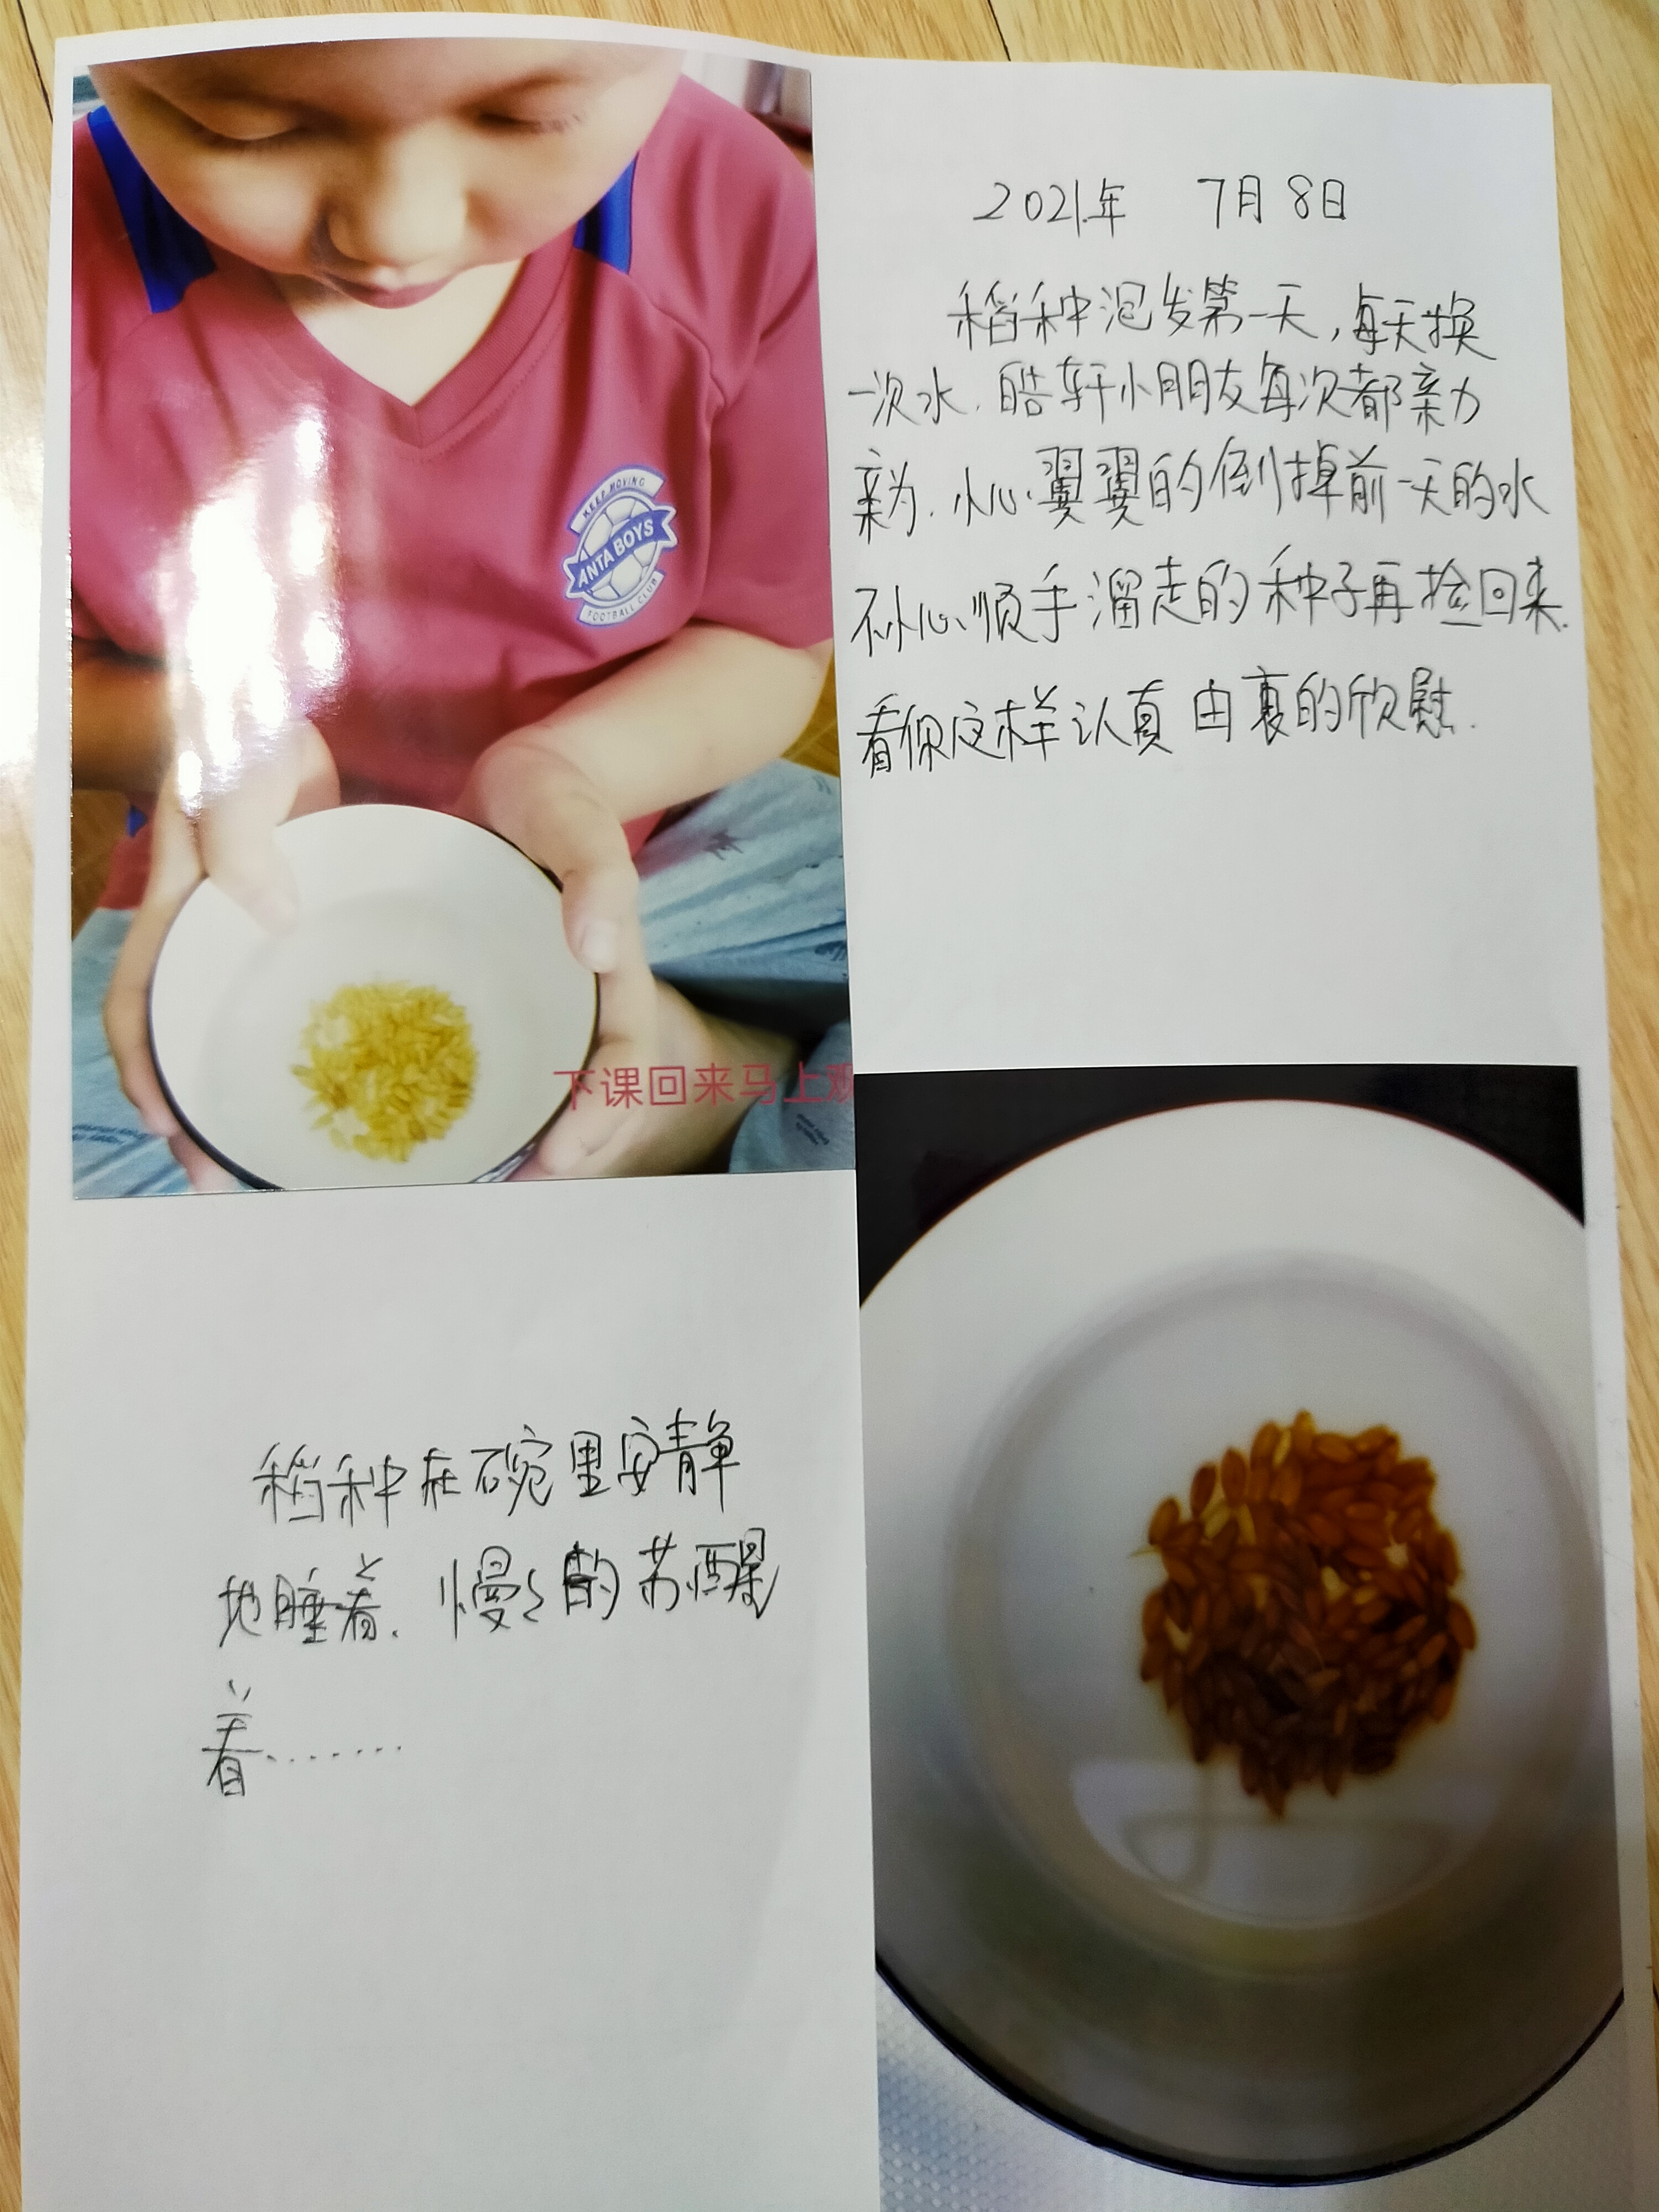 2021年 7月8日
稻种泡发第一天,每天换
一次水.皓轩小朋友每次都亲力
亲为.小心翼翼的倒掉前一天的水
不小心顺手溜走的种子再捡回来.
看你这样认真由衷的欣慰.
KEEP MOVING
ANTA BOYS
FOOTBALL CLUB
下课回来马上观
稻种在碗里安静
地睡着.慢々的苏醒
着.......